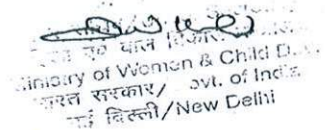 एवं बाल विकास
Ministry of Women & Child D
भारत सरकार/ ovt. of India
नई दिल्ली/New Delhi